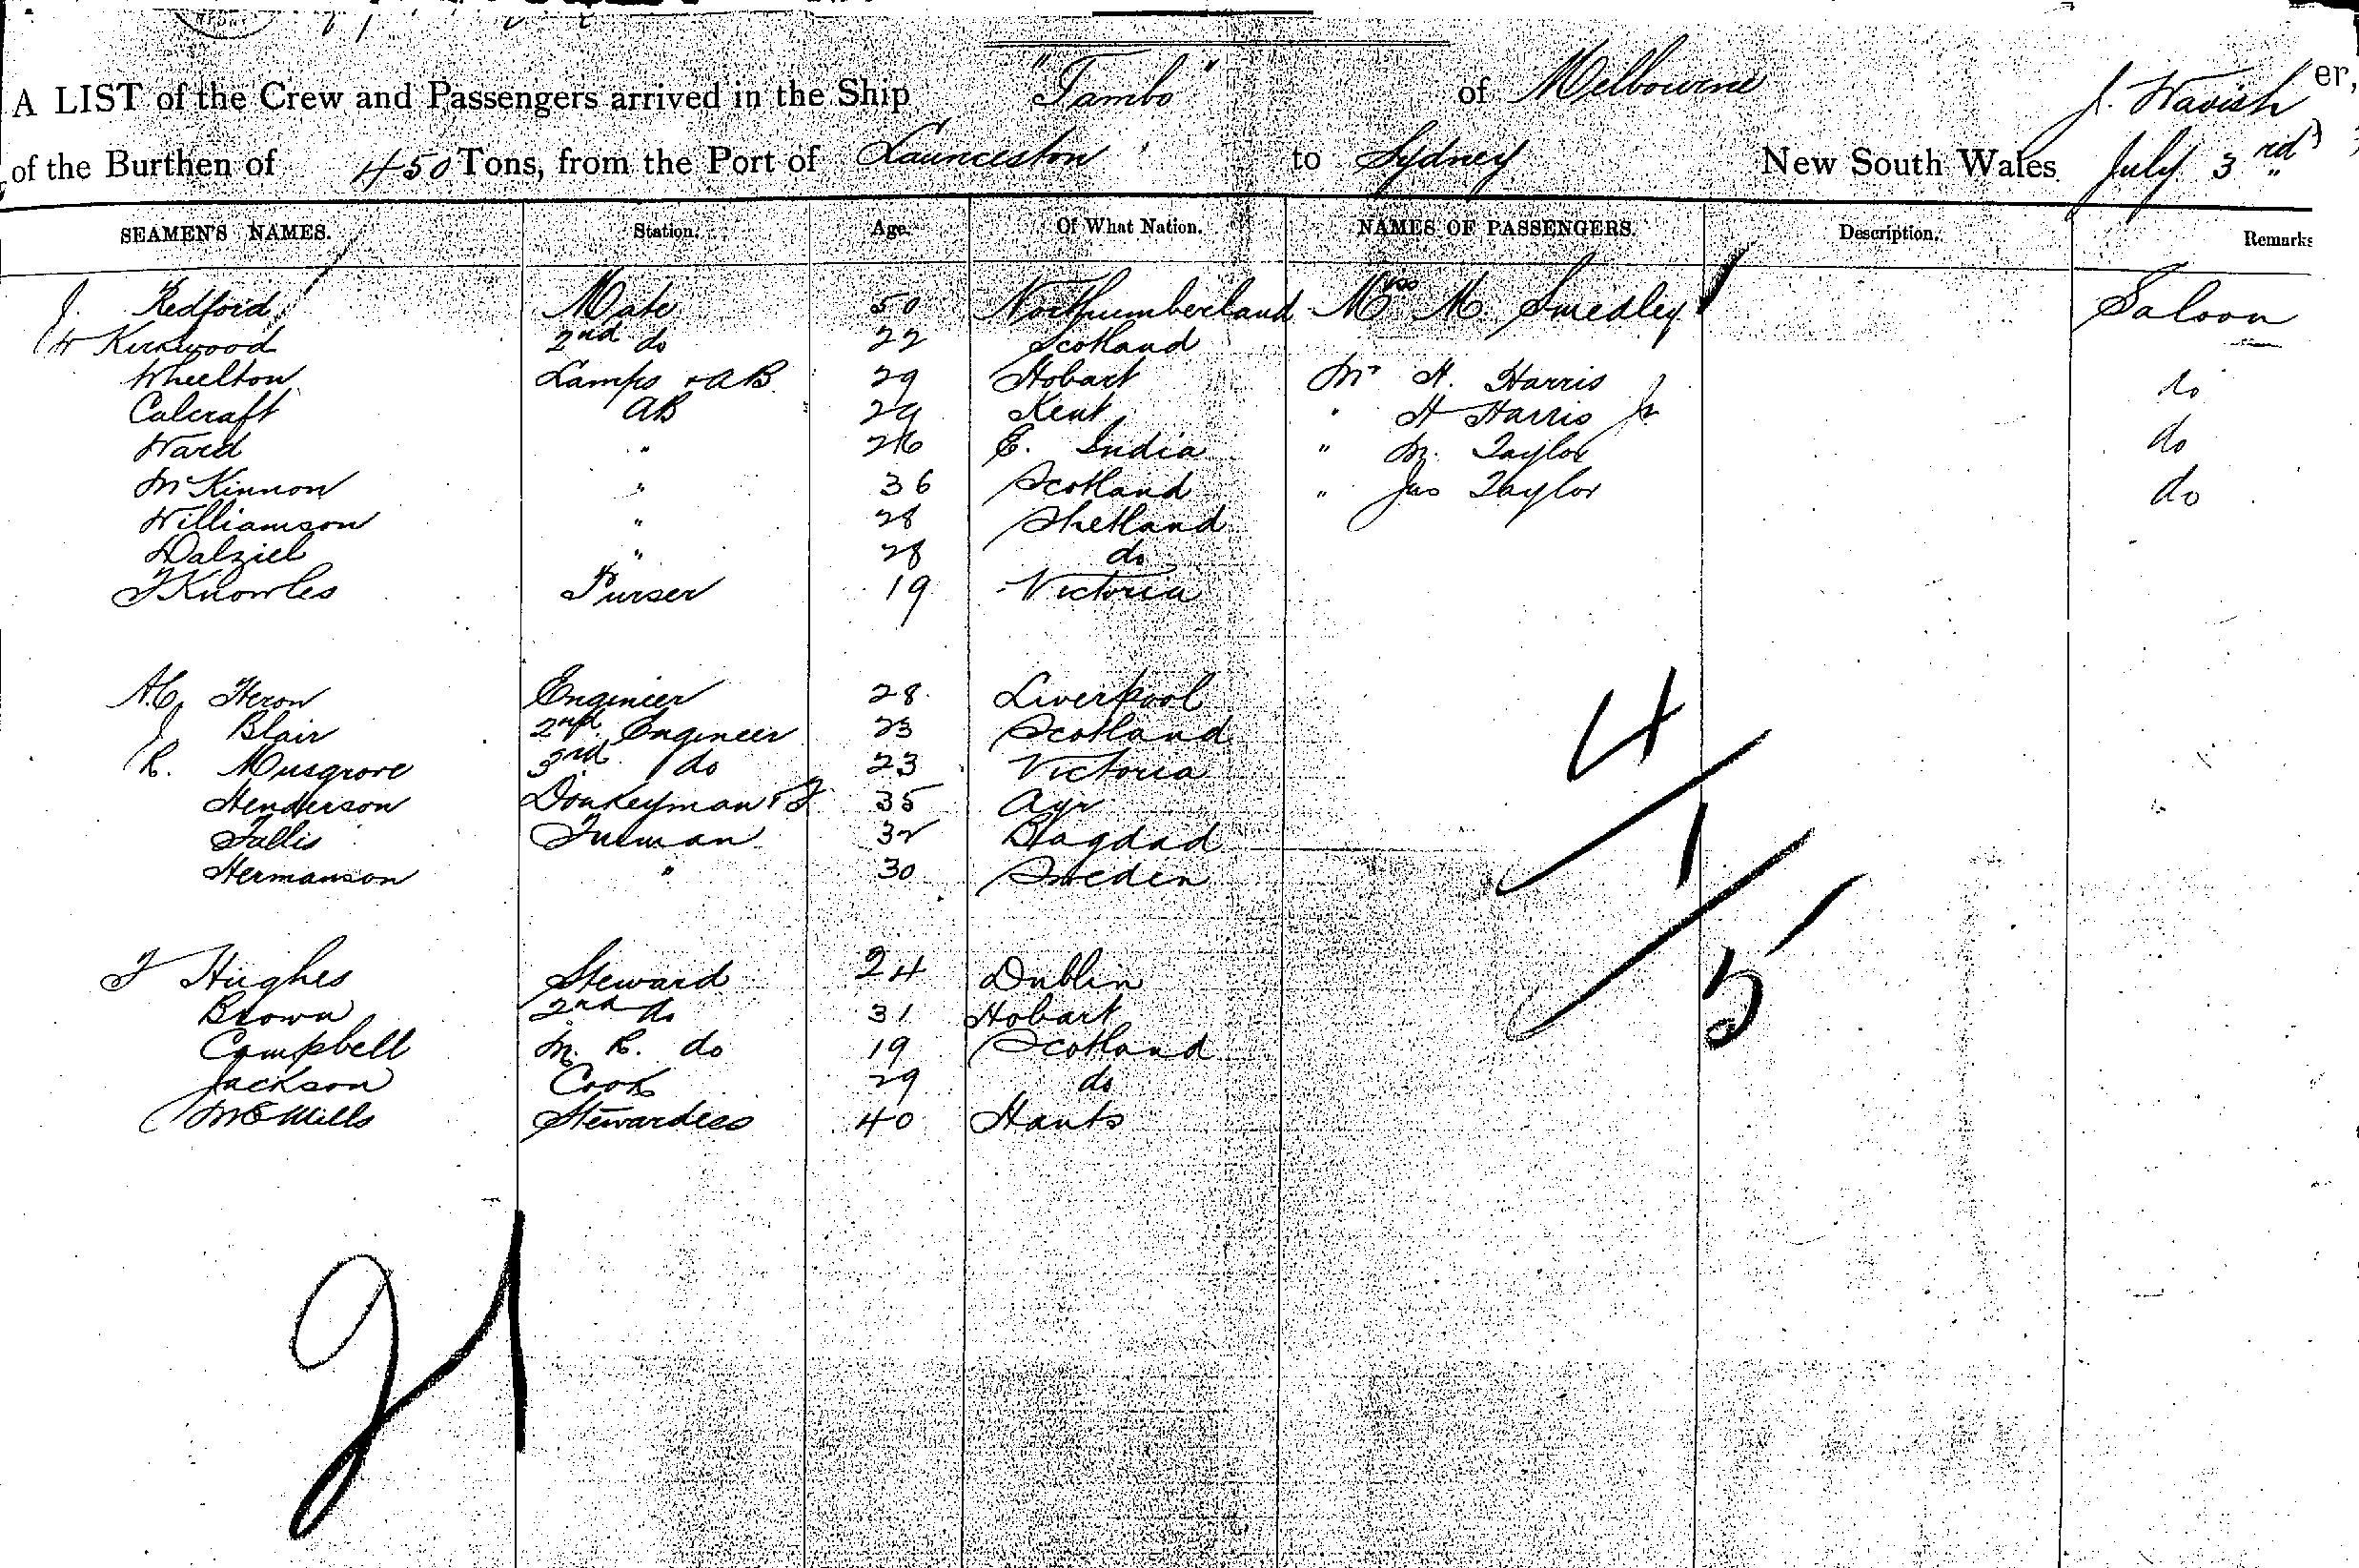 A LIST of the Crew and Passengers arrived in the Ship "Tambo" of Melbourne J. Wavish er,
of the Burthen of 450 Tons, from the Port of Launceston to Sydney New South Wales July 3rd
SEAMEN'S NAMES. Station. Age. Of What Nation. NAMES OF PASSENGERS. Description. Remarks
J. Redford Mate 50 Northumberland Mrs M. Smedley Saloon
W Kirkwood 2nd do 22 Scotland
Wheelton Lamps + AB 29 Hobart Mr H. Harris do
Calcraft AB 29 Kent " H Harris Jr
Ward " 26 E. India " M. Taylor do
McKinnon " 36 Scotland " Jas Taylor do
Williamson " 28 Shetland
Dalziel " 28 do
F Knowles Purser 19 Victoria
A.C. Heron Engineer 28 Liverpool
J Blair 2nd Engineer 23 Scotland
R. Musgrove 3rd do 23 Victoria
Henderson Donkeyman + F 35 Ayr
Tallis Fireman 32 Bagdad
Hermanson " 30 Sweden
4
1
5
F Hughes Steward 24 Dublin
Brown 2nd do 31 Hobart
Campbell M. R. do 19 Scotland
Jackson Cook 29 do
M E Mills Stewardess 40 Hants
21